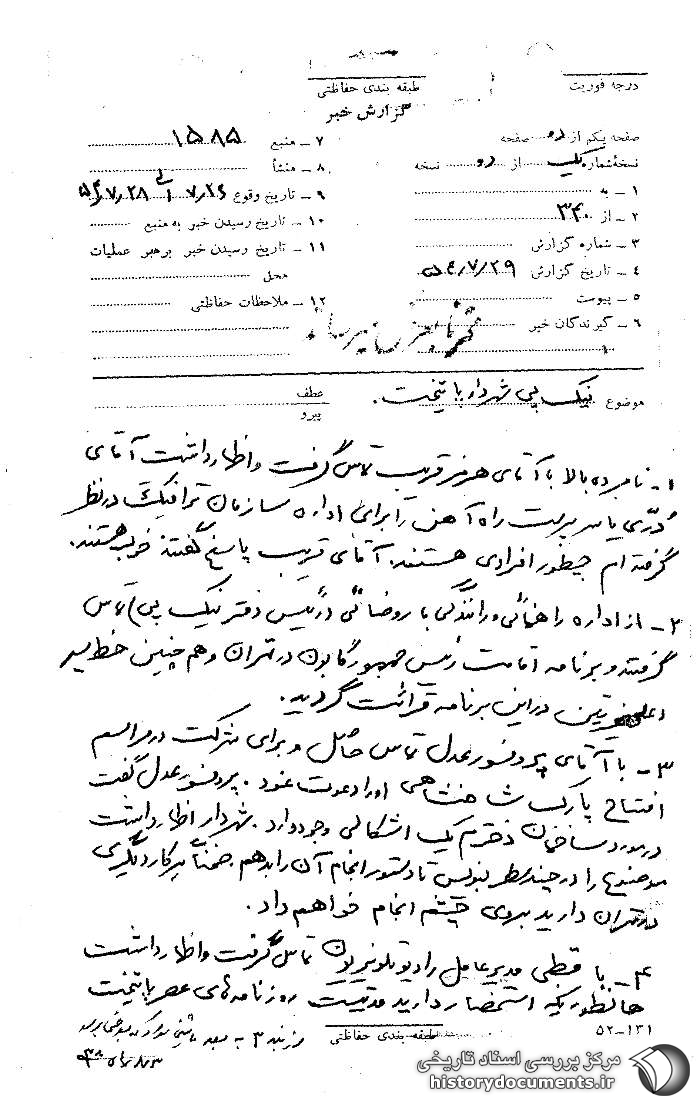 درجه فوریت
طبقه بندی حفاظتی
گزارش خبر
صفحه یکم از دو صفحه
نسخه شماره یک از دو نسخه
۱ ـ به
۲ ـ از ۳۴۰
۳ ـ شماره گزارش
۴ ـ تاریخ گزارش ۵۴/۷/۲۹
۵ ـ پیوست
۶ ـ گیرندگان خبر
۷ ـ منبع ۱۵۸۵
۸ ـ منشأ
۹ ـ تاریخ وقوع ۷/۲۶ الی ۵۴/۷/۲۸
۱۰ ـ تاریخ رسیدن خبر به منبع
۱۱ ـ تاریخ رسیدن خبر برهبر عملیات
محل
۱۲ ـ ملاحظات حفاظتی
موضوع نیک پی شهردار پایتخت.
عطف
پیرو
۱ـ نامبرده بالا با آقای هرمز قریب تماس گرفت و اظهار داشت آقای
دُرّی یا سرپرست راه آهن را برای اداره سازمان ترافیک در نظر
گرفته ام چطور افرادی هستند. آقای قریب پاسخ گفتند خوب هستند.
۲ـ از اداره راهنمائی و رانندگی با روضائی (رئیس دفتر نیک پی) تماس
گرفتند و برنامه اقامت رئیس جمهور گابون در تهران و هم چنین خط سیر
در این برنامه قرائت گردید.
۳ـ با آقای پروفسور عدل تماس حاصل و برای شرکت در مراسم
افتتاح پارک شاهنشاهی او را دعوت نمود. پروفسور عدل گفت
در مورد ساختمان دخترم یک اشکالی وجود دارد. شهردار اظهار داشت
موضوع را در چند سطر بنویس تا دستور انجام آن را بدهم. ضمناً هر کار دیگری
در تهران دارید بروی چشم انجام خواهم داد.
۴ـ با قطبی مدیر عامل رادیو تلویزیون تماس گرفت و اظهار داشت
همانطوریکه استحضار دارید مدتیست روزنامه های عصر پایتخت
طبقه بندی حفاظتی
۵۲-۱۳۱
مرکز بررسی اسناد تاریخی
historydocuments.ir